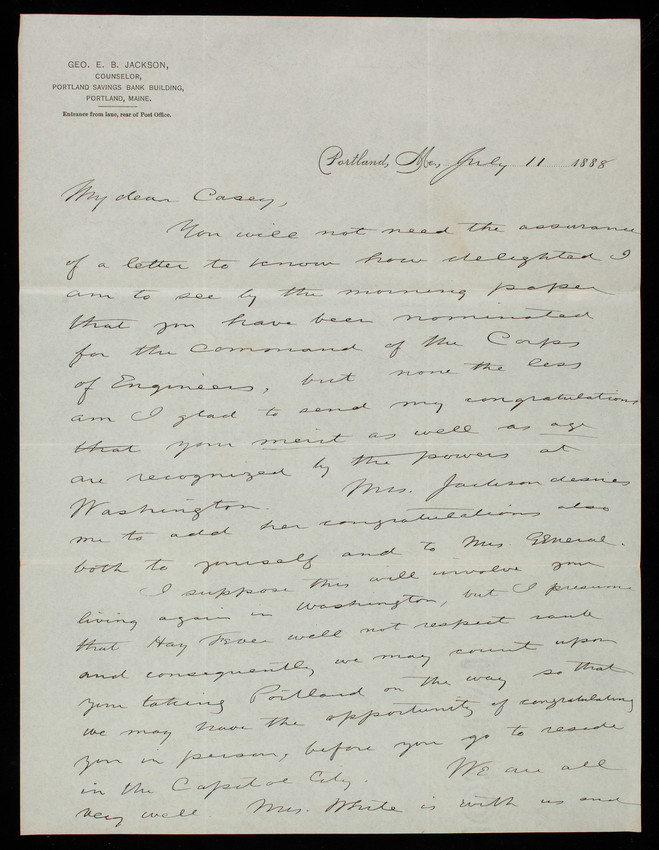 GEO. E. B. JACKSON,
COUNSELOR,
PORTLAND SAVINGS BANK BUILDING,
PORTLAND, MAINE.
Entrance from lane, rear of Post Office.
Portland, Me, July 11 1888
My dear Casey,
You will not need the assurance
of a letter to know how delighted I
am to see by the morning paper
that you have been nominated
for the command of the Corps
of Engineers, but none the less
am I glad to send my congratulations
that your merit as well as age
are recognized by the powers at
Washington. Mrs. Jackson desires
me to add her congratulations also
both to yourself and to Mrs General.
I suppose this will involve your
living again in Washington, but I presume
that Hay Fever will not respect rank
and consequently we may count upon
your taking Portland on the way so that
we may have the opportunity of congratulating
you in person, before you go to reside
in the Capitol City. We are all
very well. Mrs. White is with us and